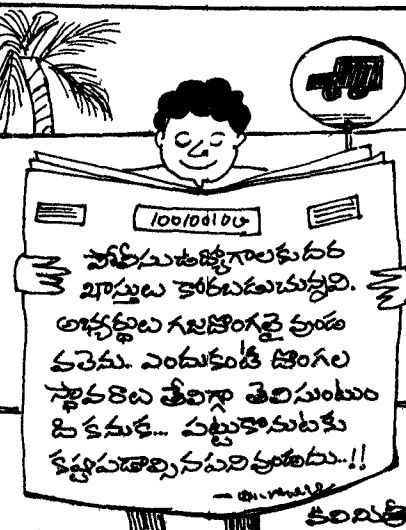 పోలీసు ఉద్యోగాలకు దర
ఖాస్తులు కోరబడుచున్నవి.
అభ్యర్థులు గజదొంగలై వుండ
వలెను. ఎందుకంటే దొంగల
స్థావరాలు తేలిగ్గా తెలిసుంటుం
ది కనుక... పట్టుకొనుటకు
కష్టపడాల్సిన పని వుండదు..!!